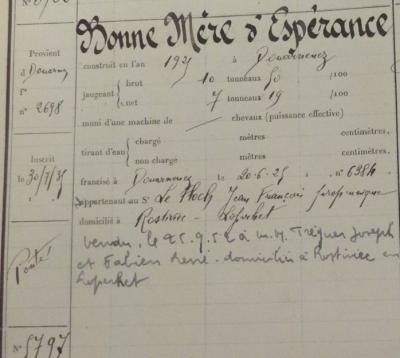 Bonne Mère d'Espérance
Provient
construit en l'an 1925 à Douarnenez
d Douarnz
brut 10 tonneaux 50 /100
jaugeant
fo
net 7 tonneaux 19 /100
n° 2698
muni d'une machine de chevaux (puissance effective)
chargé mètres centimètres.
tirant d'eau
non chargé mètres centimètres.
Inscrit
le 30/7/35
francisé à Douarnenez le 20-6-25 n° 6384
appartenant au Sr Le Floch Jean François
domicilié à Rostiviec - Loperhet
vendu le 25.9.52 à m.M. Tréguer Joseph
et Fabien René domiciliés à Rostiviec en
Loperhet
Ponté!
N° 5797